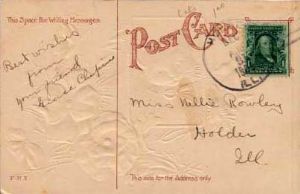 This Space for Writing Messages
POST CARD
Best wishes
from
your friend
Miss Nellie Rowley
Holder
Ill.
This side for the Address only